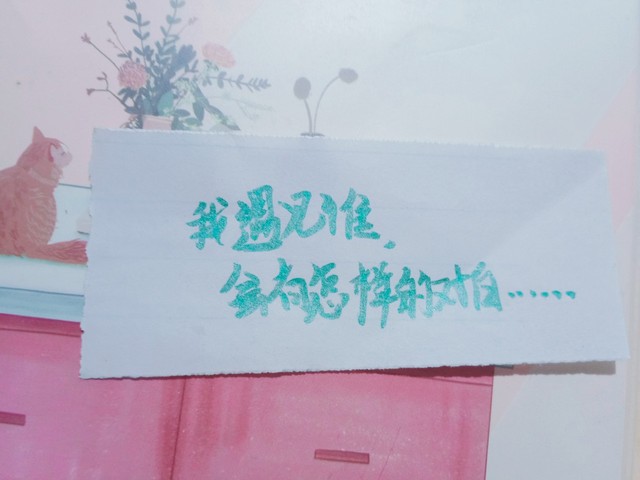 我遇见谁，
会有怎样的对白……